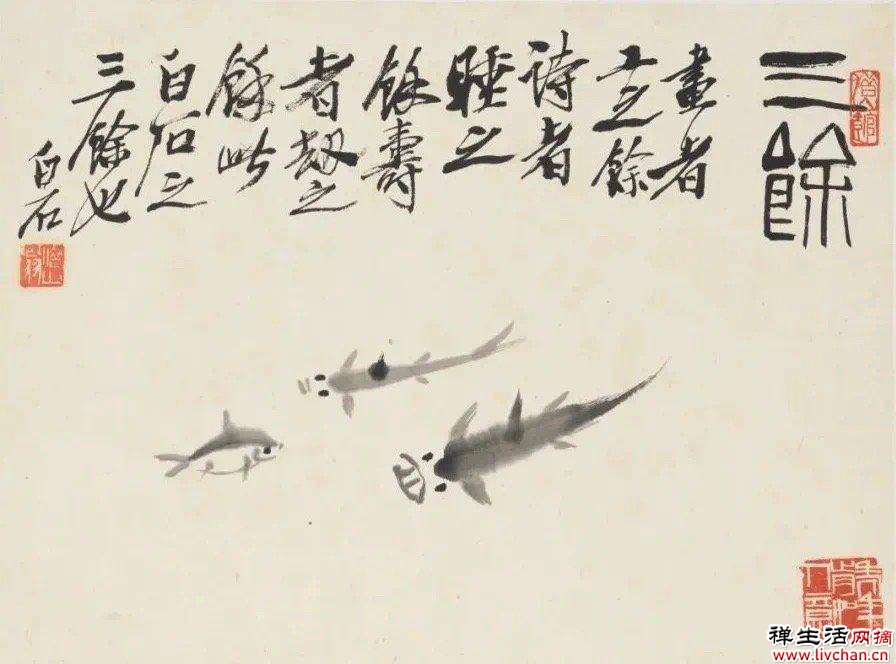 三餘
畫者
工之餘
詩者
睡之
餘壽
者劫之
餘此
白石之
三餘也
白石
禅生活网摘
www.livchan.cn